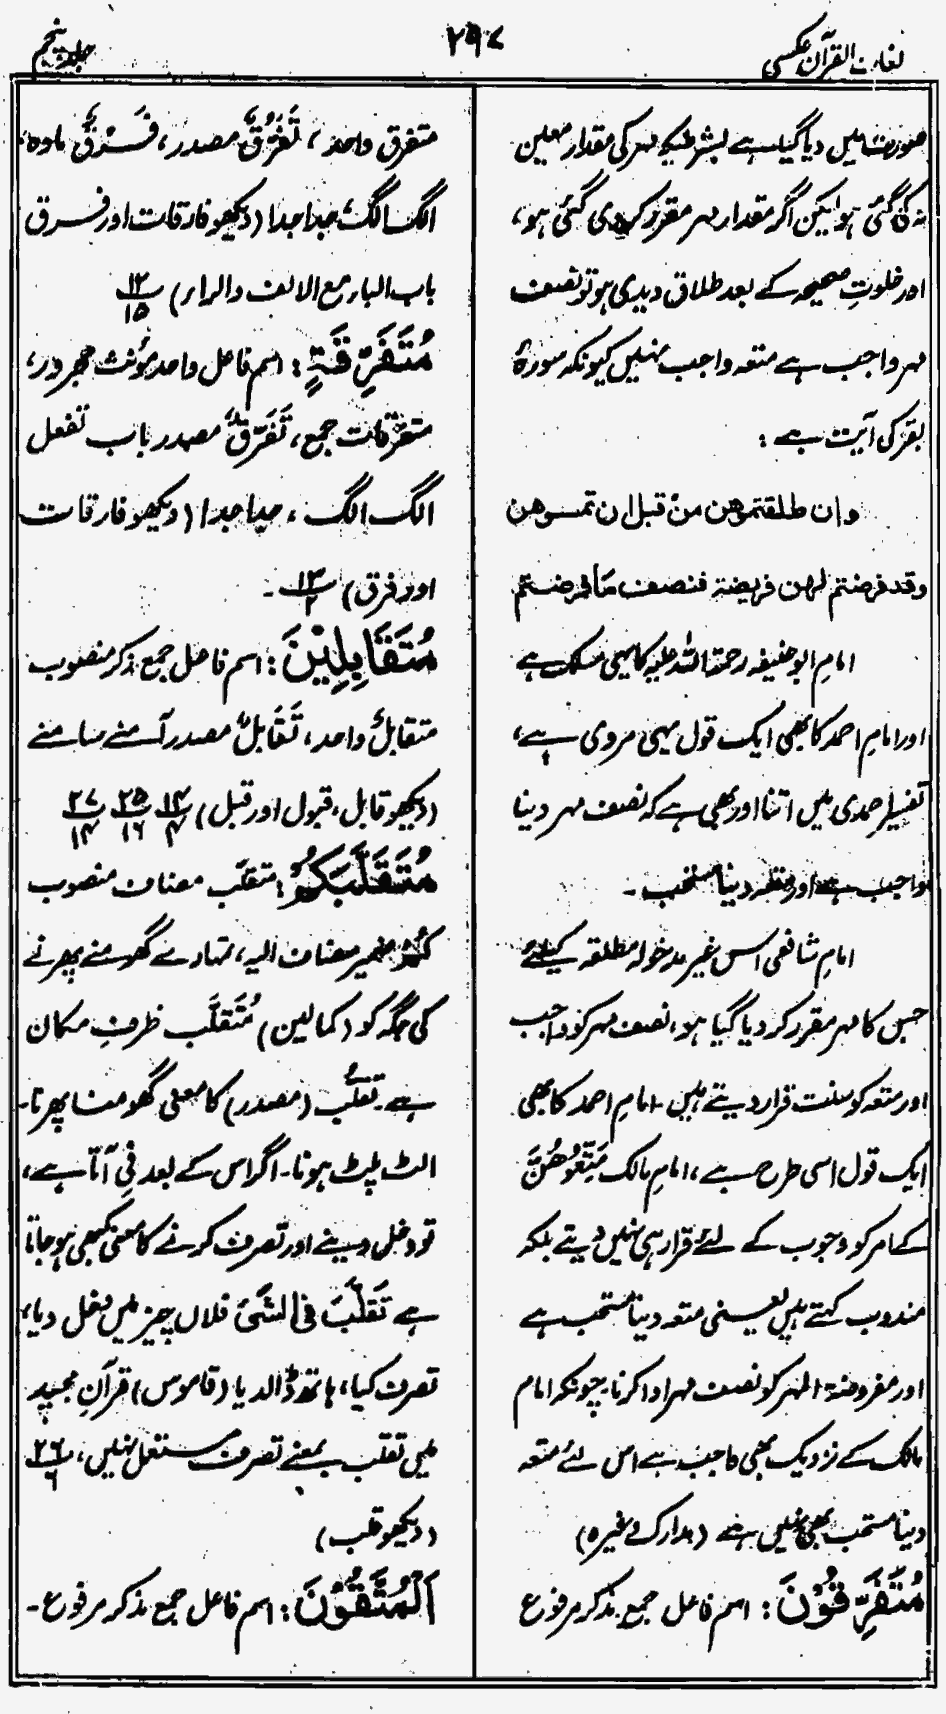 لغات القرآن عکسی
۲۹۷
جلد پنجم
صورت میں دیا گیا ہے بشرطیکہ مہر کی مقدار معین
نہ کی گئی ہو لیکن اگر مقدار مہر مقرر کر دی گئی ہو،
اور خلوتِ صحیحہ کے بعد طلاق دیدی ہو تو نصف
مہر واجب ہے متعہ واجب نہیں کیونکہ سورۂ
بقر کی آیت ہے :
وان طلقتموهن من قبل ان تمسوهن
وقد فرضتم لهن فريضة فنصف ما فرضتم
امام ابو حنیفہ رحمۃ اللہ علیہ کا یہی مسلک ہے
اور امام احمد کا بھی ایک قول یہی مروی ہے،
تفسیر احمدی میں اتنا اور بھی ہے کہ نصف مہر دینا
واجب ہے اور متعہ دینا مستحب ۔
امام شافعی اس غیر مدخولہ مطلقہ کیلئے
جس کا مہر مقرر کر دیا گیا ہو، نصف مہر کو واجب
اور متعہ کو سنت قرار دیتے ہیں ۔ امام احمد کا بھی
ایک قول اسی طرح ہے، امام مالک مَتِّعُوْهُنَّ
کے امر کو وجوب کے لئے قرار ہی نہیں دیتے بلکہ
مندوب کہتے ہیں یعنی متعہ دینا مستحب ہے
اور مفروضۃ المہر کو نصف مہر ادا کرنا۔ چونکہ امام
مالک کے نزدیک بھی واجب ہے اس لئے متعہ
دینا مستحب بھی نہیں ہے (مدارک وغیرہ)
مُتَفَرِّقُوْنَ : اسم فاعل جمع مذکر مرفوع
متفرق واحد ، تَفَرُّقٌ مصدر ، فَرْقٌ مادہ،
الگ الگ، جدا جدا (دیکھو فارقات اور فرق
باب الباء مع الالف والراء) ۱۲/۱۵
مُتَفَرِّقَةٍ : اسم فاعل واحد مؤنث مجرور،
متفرقات جمع، تَفَرُّقٌ مصدر باب تفعل
الگ الگ ، جدا جدا (دیکھو فارقات
اور فرق) ۱۳/۲ ۔
مُتَقَابِلِيْنَ : اسم فاعل جمع مذکر منصوب
متقابلٌ واحد، تَقَابُلٌ مصدر آمنے سامنے
(دیکھو قابل، قبول اور قبل) ۱۴/۴ ۲۵/۱۶ ۲۷/۱۴
مُتَقَلَّبَكُمْ : متقلّب مضاف منصوب
کُمْ ضمیر مضاف الیہ، تمہارے گھومنے پھرنے
کی جگہ کو (کمالین) مُتَقَلَّب ظرفِ مکان
ہے۔ تقلُّب (مصدر) کا معنی گھومنا پھرنا۔
الٹ پلٹ ہونا ۔ اگر اس کے بعد فِی آتا ہے،
تو دخل دینے اور تصرف کرنے کا معنی بھی ہو جاتا
ہے تَقَلَّبَ فی الشَّیْءِ فلاں چیز میں دخل دیا،
تصرف کیا، ہاتھ ڈالدیا (قاموس) قرآنِ مجید
میں تقلب بمعنے تصرف مستعمل نہیں، ۲۶/۶
(دیکھو قلب)
اَلْمُتَّقُوْنَ : اسم فاعل جمع مذکر مرفوع ۔